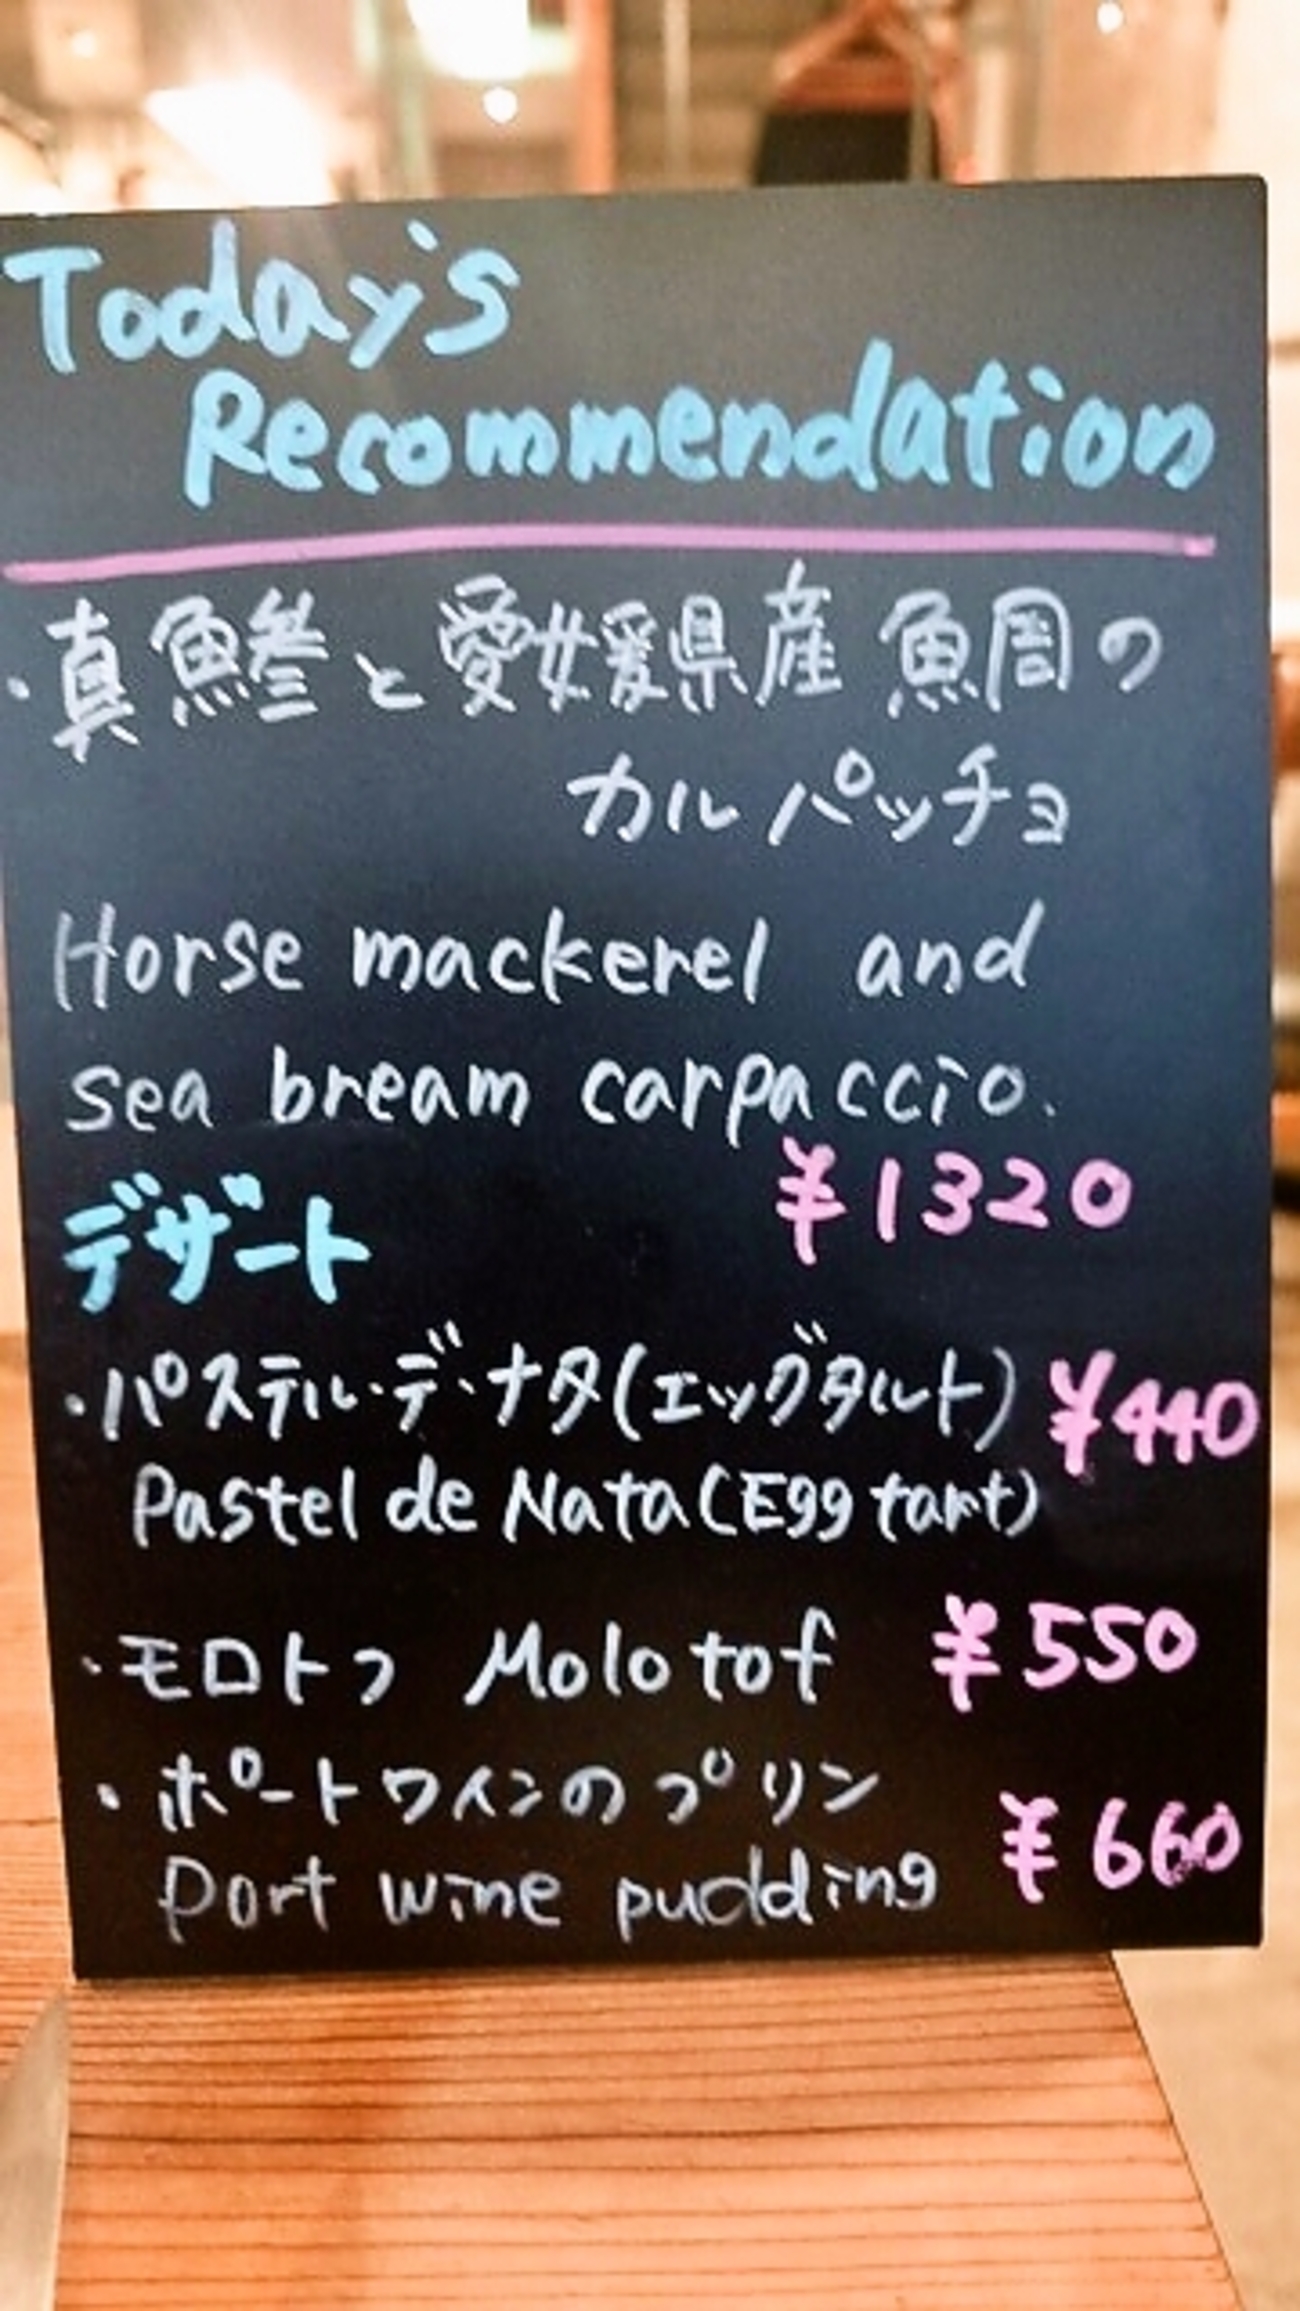 Today's
Recommendation
・真鯵と愛媛県産 鯛の
カルパッチョ
Horse mackerel and
sea bream carpaccio.
¥1320
デザート
・パステル・デ・ナタ(エッグタルト) ¥440
Pastel de Nata (Egg tart)
・モロトフ Molotof ¥550
・ポートワインのプリン
Port wine pudding ¥660